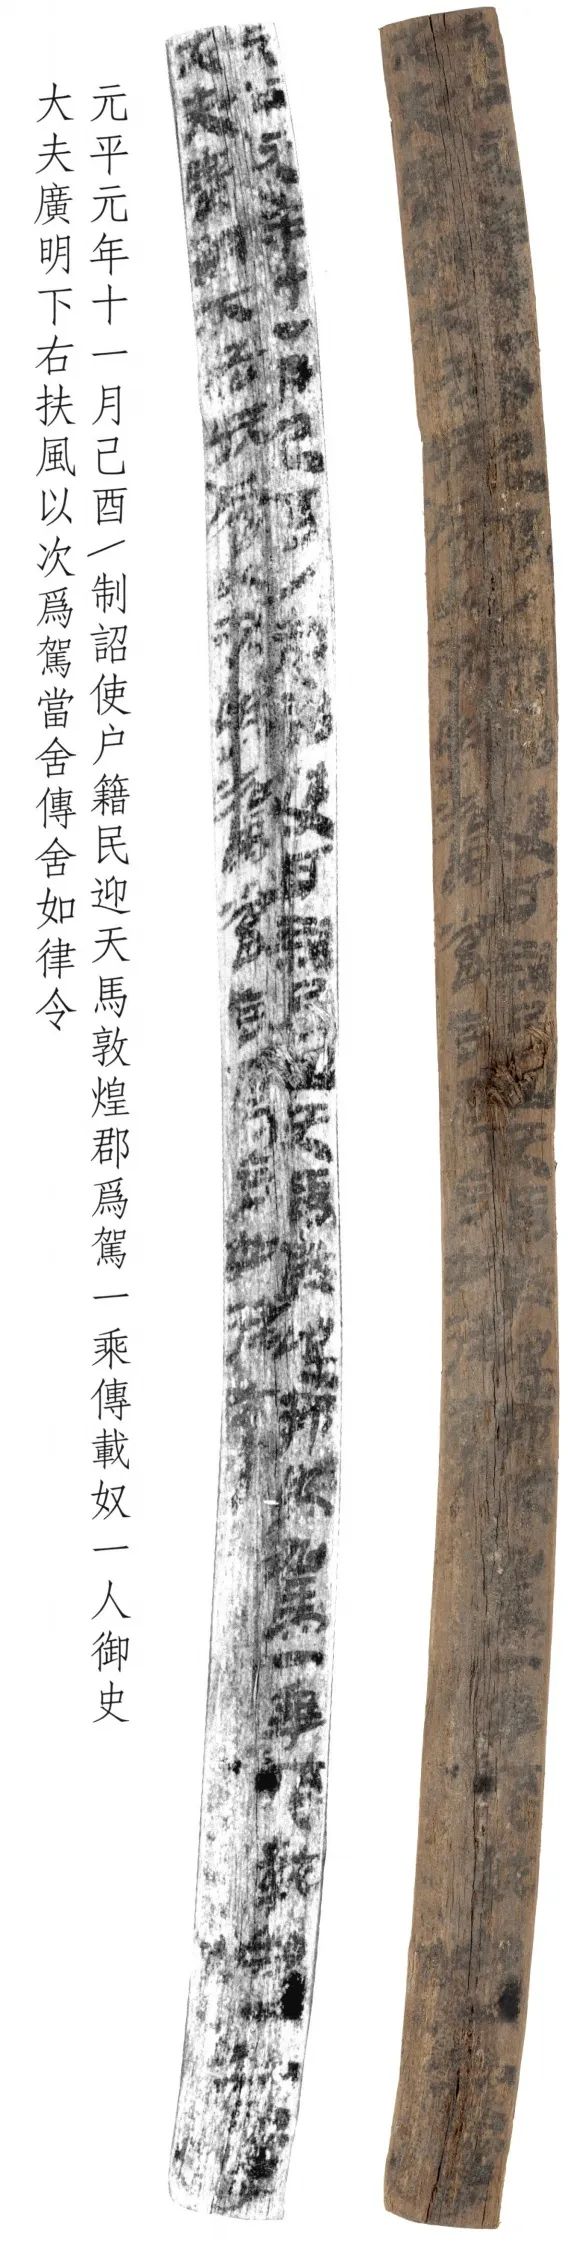 元平元年十一月己酉/制詔使户籍民迎天馬敦煌郡爲駕一乘傳載奴一人御史
大夫廣明下右扶風以次爲駕當舍傳舍如律令